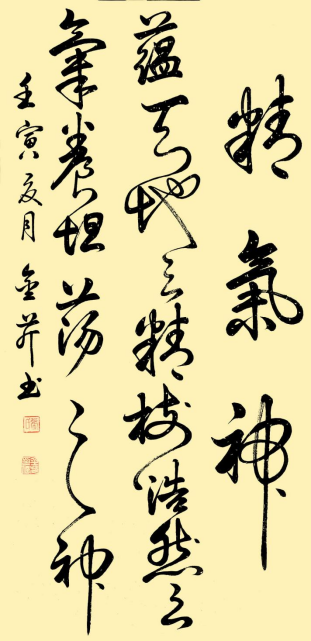 精氣神
蘊天地之精樹浩然之
氣養坦蕩之神
壬寅夏月金書